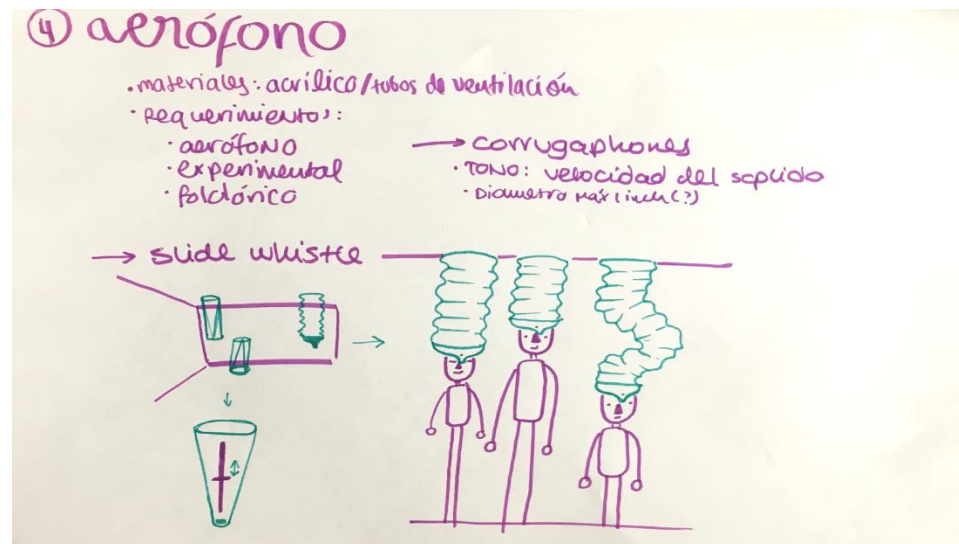 ④ aerófono
• materiales: acrílico/tubos de ventilación
• Requerimientos:
• aerófono
• experimental
• folclórico
→ corrugaphones
• TONO: velocidad del soplido
• Diametro Máx 1 inch (?)
→ slide whistle